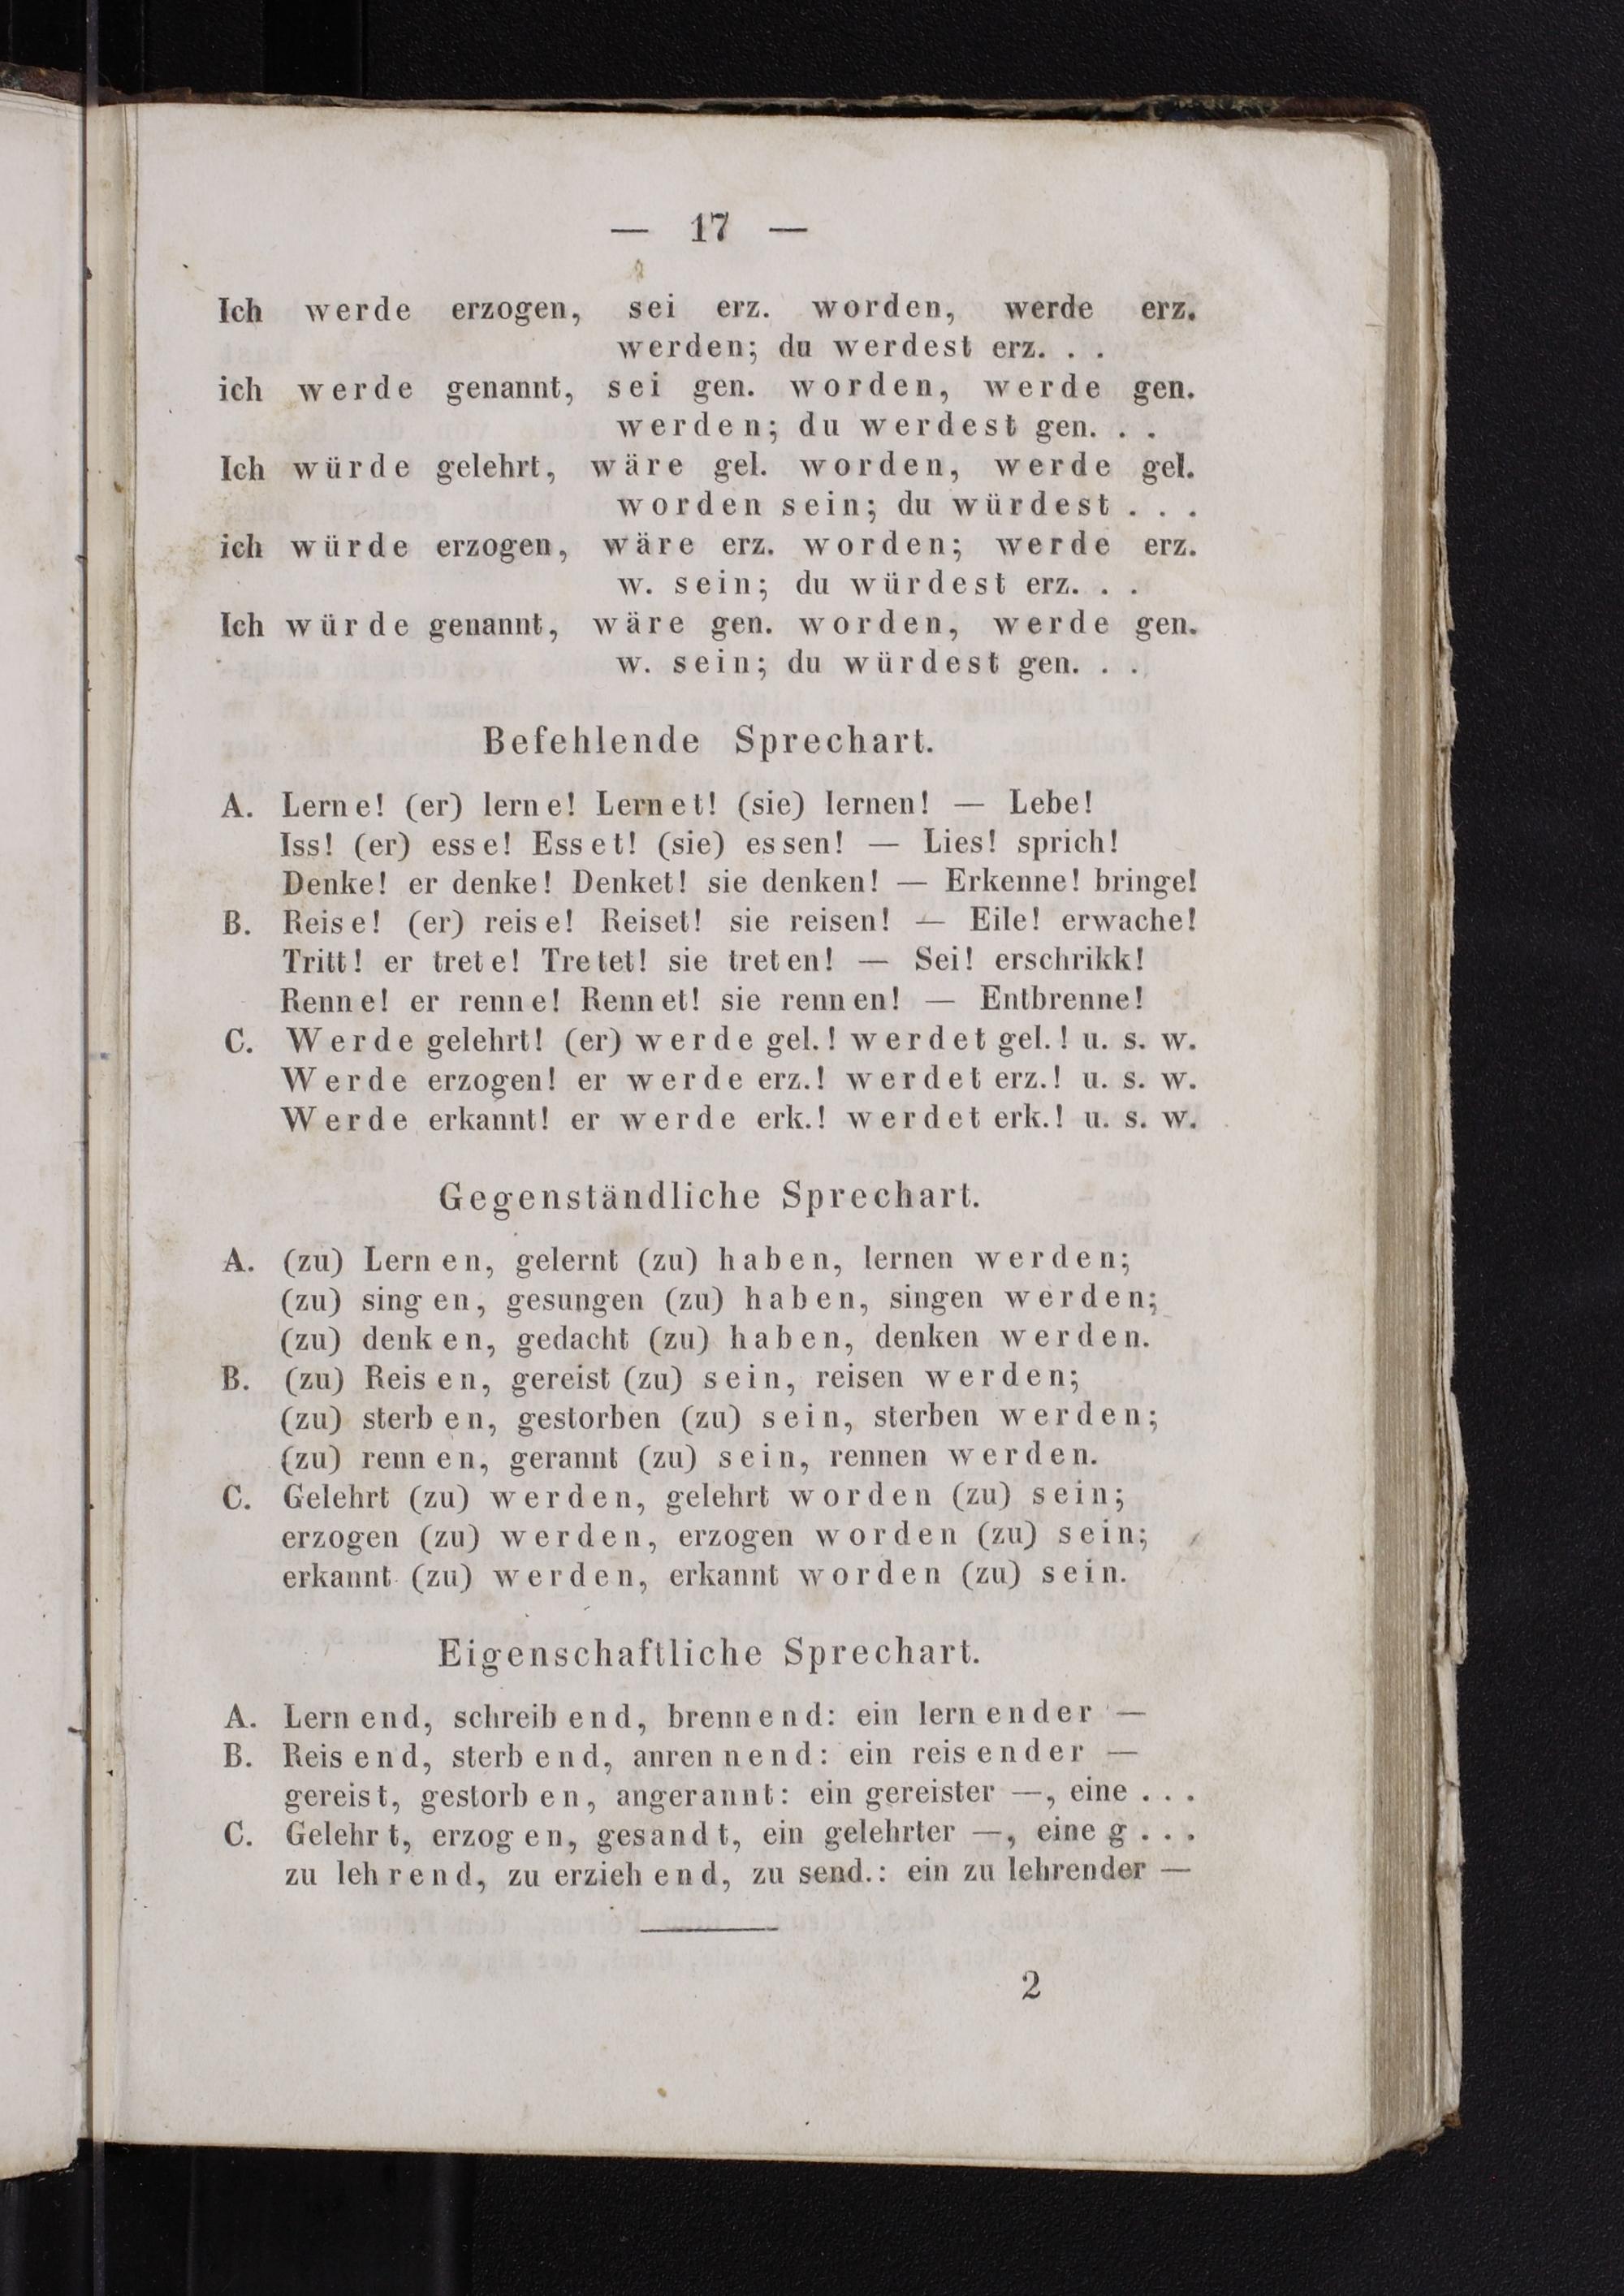 — 17 —
Ich werde erzogen, sei erz. worden, werde erz.
werden; du werdest erz. . .
ich werde genannt, sei gen. worden, werde gen.
werden; du werdest gen. . .
Ich würde gelehrt, wäre gel. worden, werde gel.
worden sein; du würdest . . .
ich würde erzogen, wäre erz. worden; werde erz.
w. sein; du würdest erz. . .
Ich würde genannt, wäre gen. worden, werde gen.
w. sein; du würdest gen. . .
Befehlende Sprechart.
A. Lerne! (er) lerne! Lernet! (sie) lernen! — Lebe!
Iss! (er) esse! Esset! (sie) essen! — Lies! sprich!
Denke! er denke! Denket! sie denken! — Erkenne! bringe!
B. Reise! (er) reise! Reiset! sie reisen! — Eile! erwache!
Tritt! er trete! Tretet! sie treten! — Sei! erschrikk!
Renne! er renne! Rennet! sie rennen! — Entbrenne!
C. Werde gelehrt! (er) werde gel.! werdet gel.! u. s. w.
Werde erzogen! er werde erz.! werdet erz.! u. s. w.
Werde erkannt! er werde erk.! werdet erk.! u. s. w.
Gegenständliche Sprechart.
A. (zu) Lernen, gelernt (zu) haben, lernen werden;
(zu) singen, gesungen (zu) haben, singen werden;
(zu) denken, gedacht (zu) haben, denken werden.
B. (zu) Reisen, gereist (zu) sein, reisen werden;
(zu) sterben, gestorben (zu) sein, sterben werden;
(zu) rennen, gerannt (zu) sein, rennen werden.
C. Gelehrt (zu) werden, gelehrt worden (zu) sein;
erzogen (zu) werden, erzogen worden (zu) sein;
erkannt (zu) werden, erkannt worden (zu) sein.
Eigenschaftliche Sprechart.
A. Lernend, schreibend, brennend: ein lernender —
B. Reisend, sterbend, anrennend: ein reisender —
gereist, gestorben, angerannt: ein gereister —, eine . . .
C. Gelehrt, erzogen, gesandt, ein gelehrter —, eine g . . .
zu lehrend, zu erziehend, zu send.: ein zu lehrender —
2